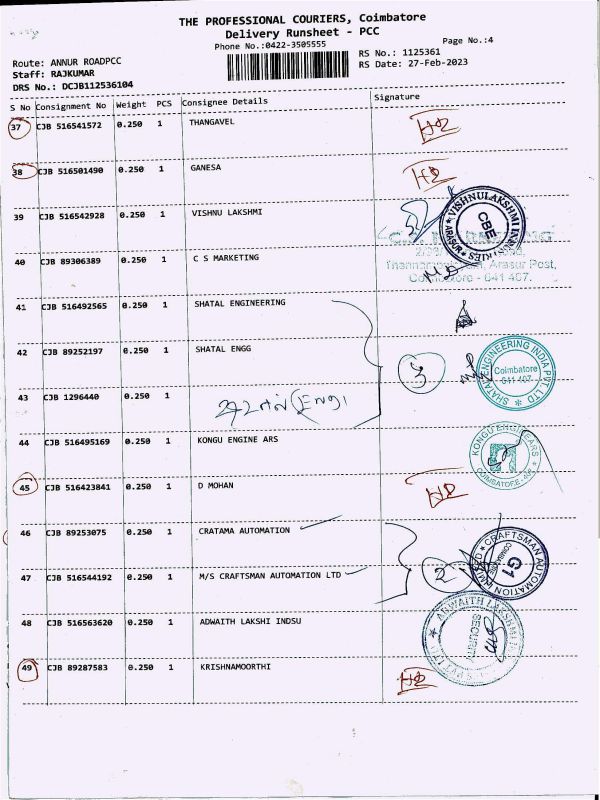 THE PROFESSIONAL COURIERS, Coimbatore
Delivery Runsheet - PCC
Phone No.:0422-3505555
Page No.:4
Route: ANNUR ROADPCC
RS No.: 1125361
Staff: RAJKUMAR
RS Date: 27-Feb-2023
DRS No.: DCJB112536104
S No Consignment No Weight PCS Consignee Details Signature
37 CJB 516541572 0.250 1 THANGAVEL
38 CJB 516501490 0.250 1 GANESA
39 CJB 516542928 0.250 1 VISHNU LAKSHMI
VISHNULAKSHMI INDUSTRIES
CBE
ARASUR
40 CJB 89306389 0.250 1 C S MARKETING
Arasur Post,
Coimbatore - 641 407.
41 CJB 516492565 0.250 1 SHATAL ENGINEERING
42 CJB 89252197 0.250 1 SHATAL ENGG
3
SHATAL ENGINEERING INDIA PVT LTD
Coimbatore
641 407
43 CJB 1296440 0.250 1
44 CJB 516495169 0.250 1 KONGU ENGINE ARS
KONGU ENGINEARS
COIMBATORE
45 CJB 516423841 0.250 1 D MOHAN
46 CJB 89253075 0.250 1 CRATAMA AUTOMATION
47 CJB 516544192 0.250 1 M/S CRAFTSMAN AUTOMATION LTD
2
CRAFTSMAN AUTOMATION LIMITED
G1
48 CJB 516563620 0.250 1 ADWAITH LAKSHI INDSU
ADWAITH LAKSHMI
SECURITY
49 CJB 89287583 0.250 1 KRISHNAMOORTHI